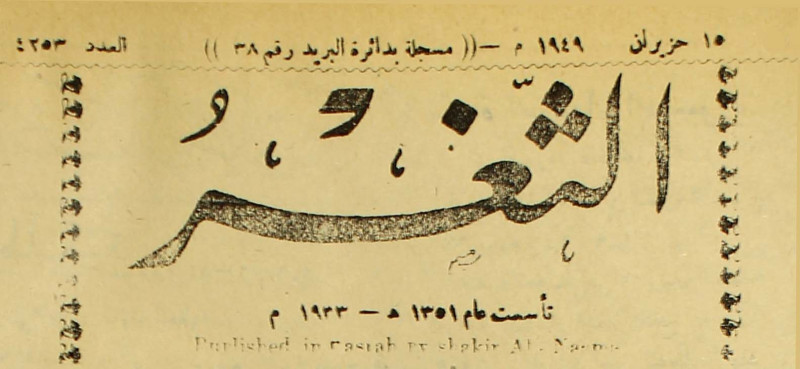 ١٥ حزيران ١٩٤٩ م —(( مسجلة بدائرة البريد رقم ٣٨ )) العدد ٤٢٥٣
الثَّغْرُ
تأسست عام ١٣٥١ هـ — ١٩٣٣ م
Published in Basrah by shakir Al- Naama